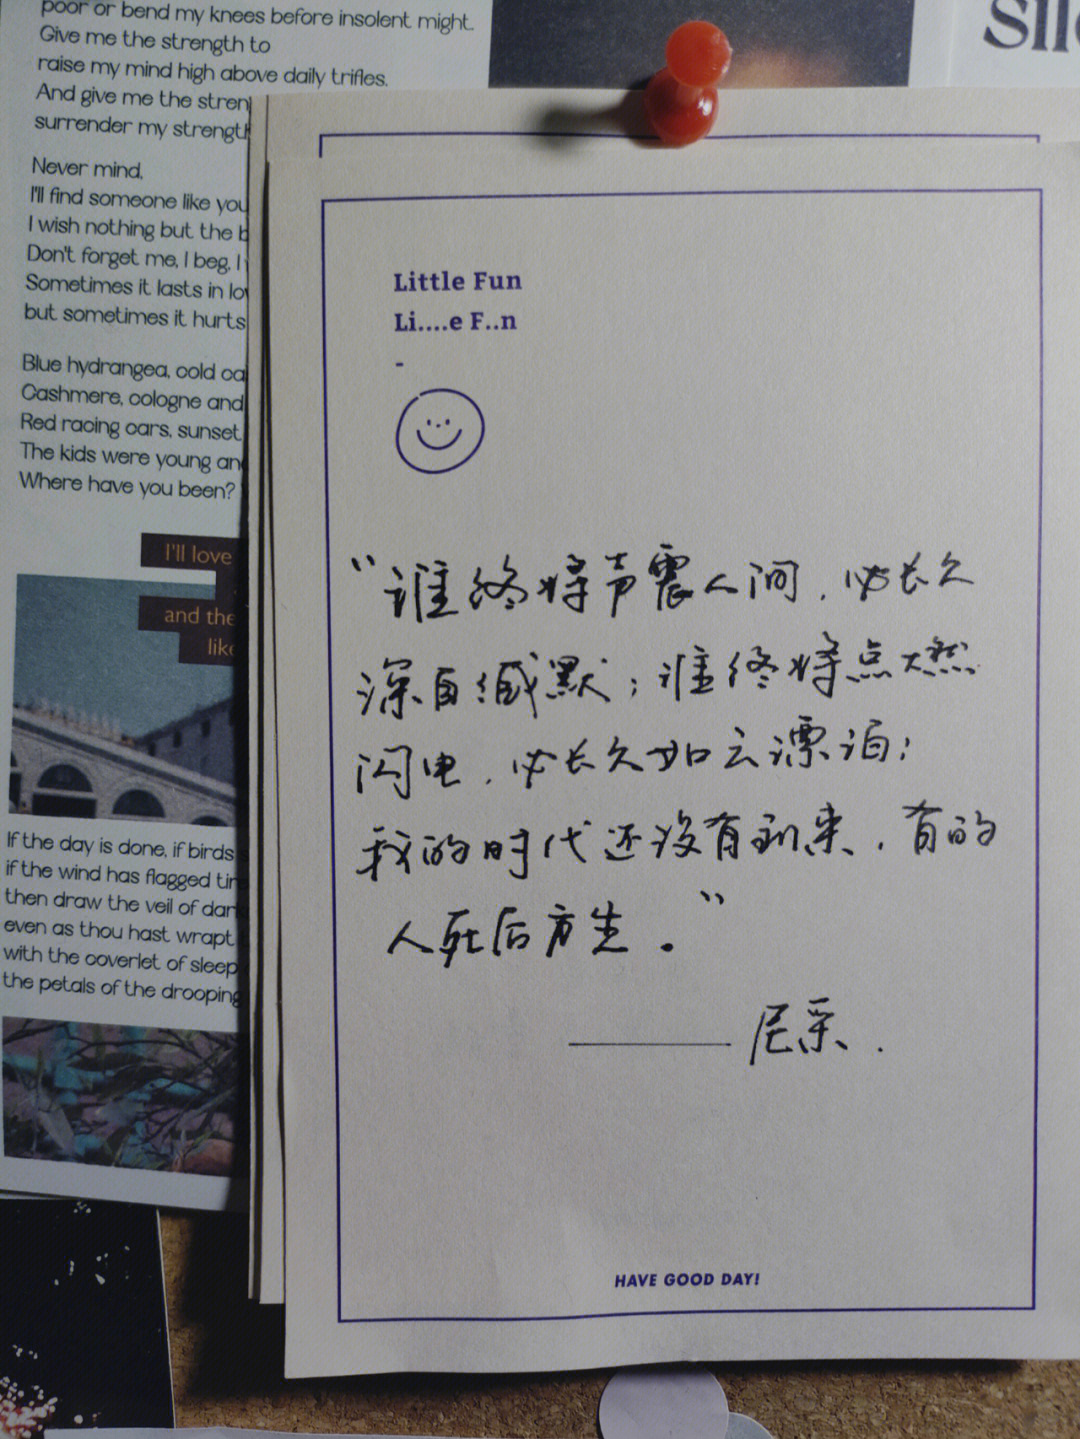 poor or bend my knees before insolent might.
Give me the strength to
raise my mind high above daily trifles.
And give me the stren
surrender my strength
Never mind,
I'll find someone like you
I wish nothing but the b
Don't forget me, I beg, I
Sometimes it lasts in lo
but sometimes it hurts
Blue hydrangea, cold ca
Cashmere, cologne and
Red racing cars, sunset
The kids were young an
Where have you been?
I'll love
and the
like
If the day is done, if birds
if the wind has flagged tir
then draw the veil of dar
even as thou hast wrapt
with the coverlet of sleep
the petals of the drooping
Little Fun
Li....e F..n
-
“谁终将声震人间，必长久
深自缄默；谁终将点燃
闪电，必长久如云漂泊；
我的时代还没有到来，有的
人死后方生。”
——尼采.
HAVE GOOD DAY!